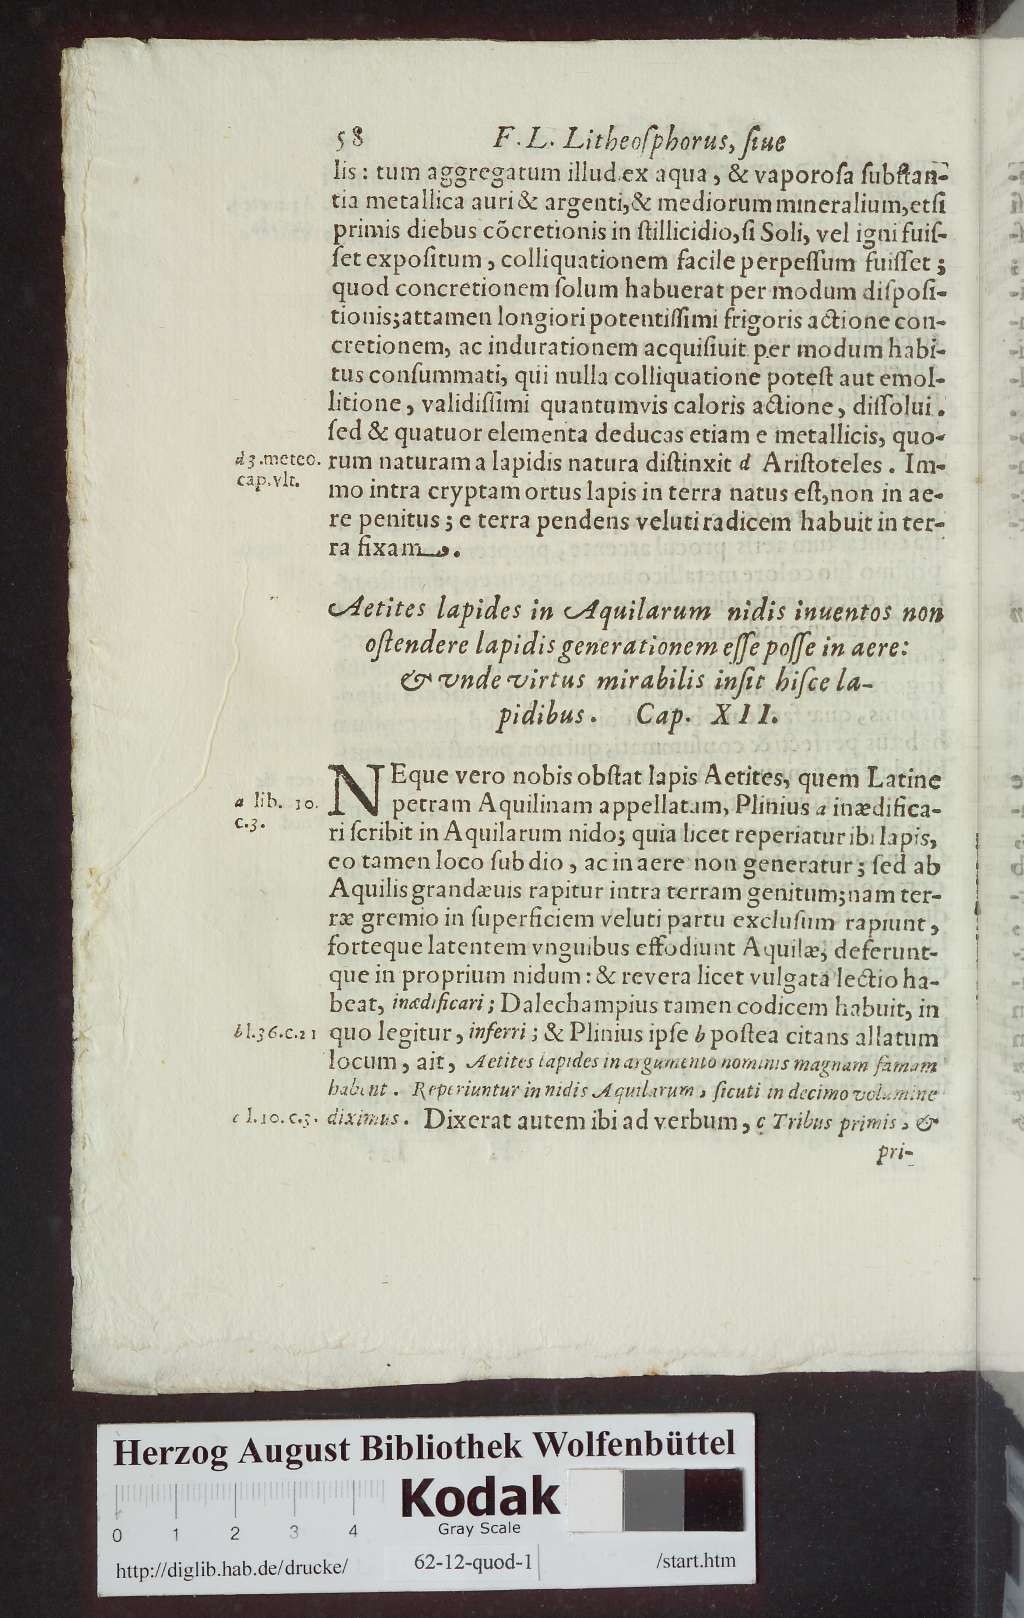 58 F. L. Litheoſphorus, ſiue
lis: tum aggregatum illud ex aqua, & vaporoſa ſubſtan-
tia metallica auri & argenti, & mediorum mineralium, etſi
primis diebus cõcretionis in ſtillicidio, ſi Soli, vel igni fuiſ-
ſet expoſitum, colliquationem facile perpeſſum fuiſſet;
quod concretionem ſolum habuerat per modum diſpoſi-
tionis; attamen longiori potentiſſimi frigoris actione con-
cretionem, ac indurationem acquiſiuit per modum habi-
tus conſummati, qui nulla colliquatione poteſt aut emol-
litione, validiſſimi quantumvis caloris actione, diſſolui.
ſed & quatuor elementa deducas etiam e metallicis, quo-
d 3. meteo. cap. vlt.
rum naturam a lapidis natura diſtinxit d Ariſtoteles. Im-
mo intra cryptam ortus lapis in terra natus eſt, non in ae-
re penitus; e terra pendens veluti radicem habuit in ter-
ra fixam.
Aetites lapides in Aquilarum nidis inuentos non
oſtendere lapidis generationem eſſe poſſe in aere:
& vnde virtus mirabilis inſit hiſce la-
pidibus. Cap. XII.
NEque vero nobis obſtat lapis Aetites, quem Latine
a lib. 10. c. 3.
petram Aquilinam appellatam, Plinius a inædifica-
ri ſcribit in Aquilarum nido; quia licet reperiatur ibi lapis,
eo tamen loco ſub dio, ac in aere non generatur; ſed ab
Aquilis grandæuis rapitur intra terram genitum; nam ter-
ræ gremio in ſuperficiem veluti partu excluſum rapiunt,
forteque latentem vnguibus effodiunt Aquilæ, deferunt-
que in proprium nidum: & revera licet vulgata lectio ha-
beat, inædificari; Dalechampius tamen codicem habuit, in
b l. 36. c. 21
quo legitur, inferri; & Plinius ipſe b poſtea citans allatum
locum, ait, Aetites lapides in argumento nominis magnam famam
habent. Reperiuntur in nidis Aquilarum, ſicuti in decimo volumine
c l. 10. c. 3.
diximus. Dixerat autem ibi ad verbum, c Tribus primis, &
pri-
Herzog August Bibliothek Wolfenbüttel
Kodak
Gray Scale
0 1 2 3 4
http://diglib.hab.de/drucke/ 62-12-quod-1 /start.htm